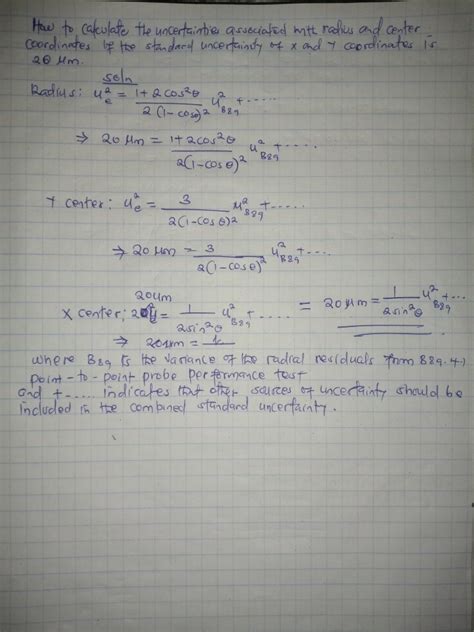 How to calculate the uncertainties associated with radius and center
coordinates if the standard uncertainty of x and y coordinates is
20 μm.
soln
Radius: u²e = 1 + 2cos²θ / 2(1-cosθ)² u²B89 + .....
⇒ 20 μm = 1+2cos²θ / 2(1-cosθ)² u²B89 + ....
Y center: u²e = 3 / 2(1-cosθ)² u²B89 + .....
⇒ 20 μm = 3 / 2(1-cosθ)² u²B89 + ...
X center; 20μm = 1 / 2sin²θ u²B89 + ..... = 20μm = 1 / 2sin²θ u²B89 + ...
⇒ 20μm =
where B89 is the variance of the radial residuals from B89.4.1
point-to-point probe performance test
and +..... indicates that other sources of uncertainty should be
included in the combined standard uncertainty.